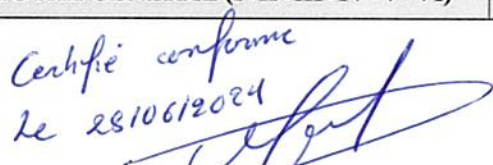 Certifié conforme
Le 28/06/2024